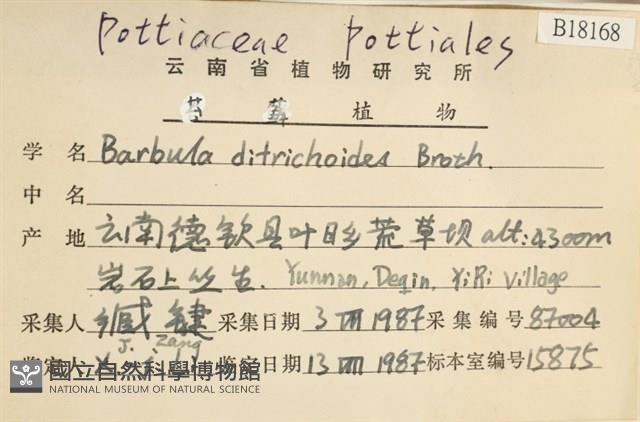 Pottiaceae Pottiales
B18168
云南省植物研究所
苔藓植物
学名 Barbula ditrichoides Broth.
中名
产地 云南德钦县叶日乡荒草坝 alt: 4300m
岩石上丛生. Yunnan, Deqin, YiRi Village
采集人 臧键 采集日期 3 VIII 1987 采集编号 87004
J. Zang
鉴定人 鉴定日期 13 VIII 1987 标本室编号 15875
國立自然科學博物館
NATIONAL MUSEUM OF NATURAL SCIENCE